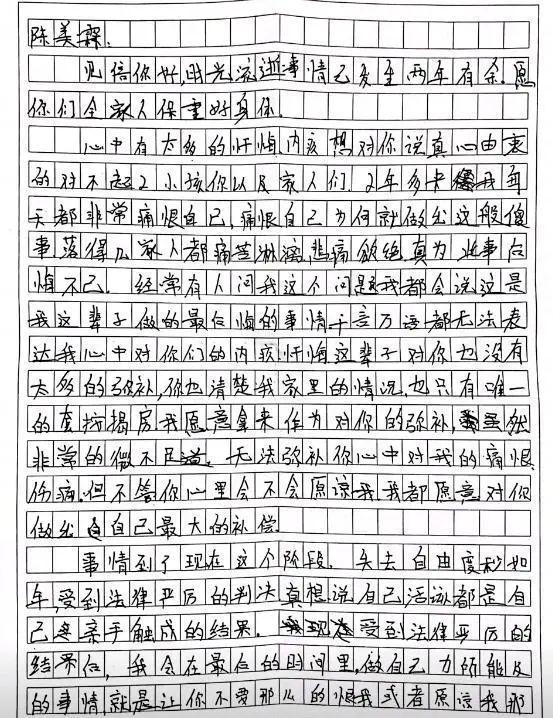 陈美霖.
见信你好,时光流逝事情已发生两年有余.愿
你们全家人保重好身体.
心中有太多的忏悔内疚想对你说真心由衷
的对不起2小孩你以及家人们.2年多来我每
天都非常痛恨自己,痛恨自己为何就做出这般傻
事.落得几家人都痛苦淋漓,悲痛欲绝真为此事后
悔不已.经常有人问我这个问题我都会说这是
我这辈子做的最后悔的事情千言万语都无法表
达我心中对你们的内疚忏悔这辈子对你也没有
太多的弥补,你也清楚我家里的情况,也只有唯一
的套按揭房我愿意拿来作为对你的弥补,虽然
非常的微不足道.无法弥补你心中对我的痛恨
伤痛.但不管你心里会不会原谅我,我都愿意对你
做出自己最大的补偿.
事情到了现在这个阶段.失去自由度秒如
年,受到法律严厉的判决真想说自己活该都是自
己亲手触成的结果.受到法律严厉的
结果后,我会在最后的时间里,做自己力所能及
的事情,就是让你不要那么的恨我或者原谅我那